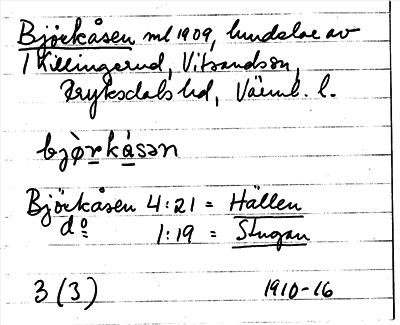 Björkåsen ml 1909, lundelar av
1 Killingerud, Vitsandssn,
Fryksdals hd, Värml. l.
bjò̱rkå̱sən
Björkåsen 4:21 = Hällen
do 1:19 = Stugan
3 (3) 1910-16